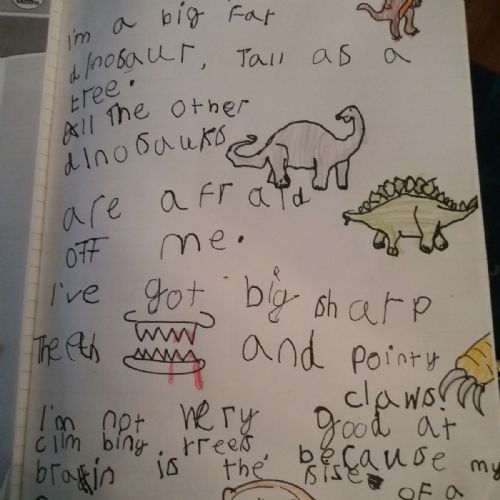 I'm a big fat
dinosaur, Tall as a
tree.
All The other
dinosaurs
are afraid
off me.
I've got big sharp
Theeth and pointy
claws.
I'm not very good at
climbing trees because my
brain is the sise of a